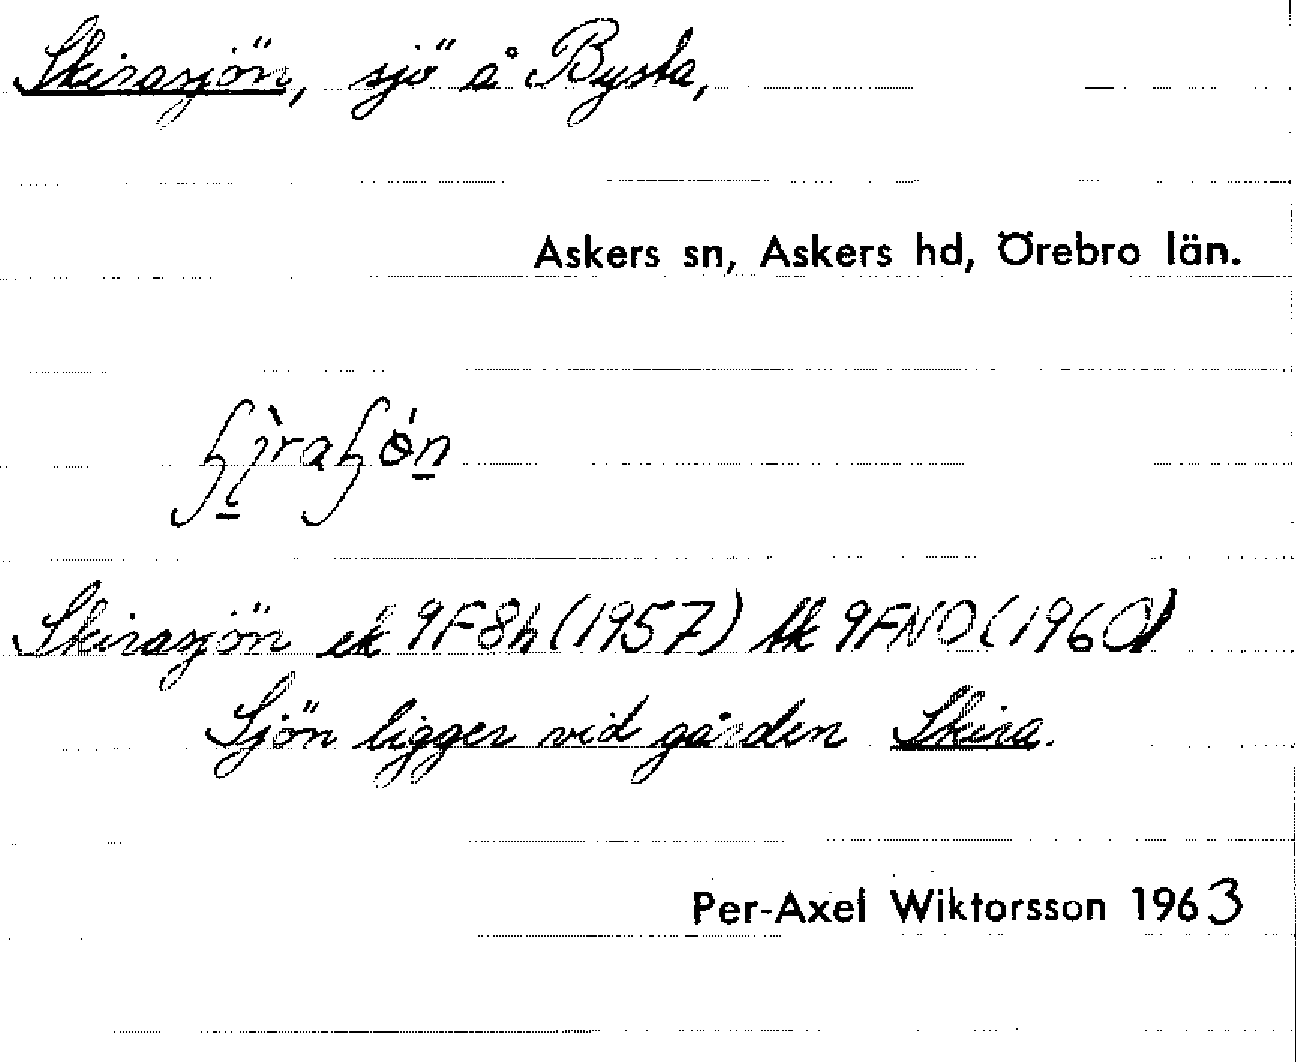 Skirasjön, sjö å Bysta,
Askers sn, Askers hd, Örebro län.
Skirasjön ek 9F8h (1957) tk 9FNO (1960)
Sjön ligger vid gården Skira.
Per-Axel Wiktorsson 1963